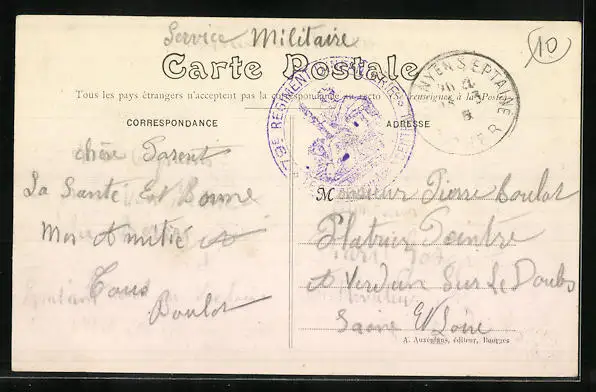 Service Militaire
10
Carte Postale
Tous les pays étrangers n'acceptent pas la correspondance au recto (se renseigner à la Poste)
CORRESPONDANCE
ADRESSE
79E REGIMENT
NYEN S EPTAINE
CHER
chère Parent
La Santé Est Bonne
Mes Amitié a
Tous
Boulot
Monsieur Pierre Boulot
Platrier Peintre
A Verdun Sur Le Doubs
Saone Et Loire
A. Auxenfans, éditeur, Bourges